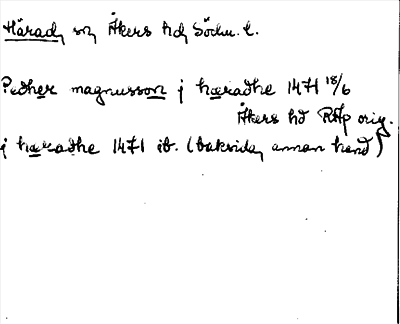 Härad, sn, Åkers hd, Södm. l.
Pedher magnusson j hæradhe 1471 18/6
Åkers hd RAp orig.
j hæradhe 1471 ib. (baksidan, annan hand)